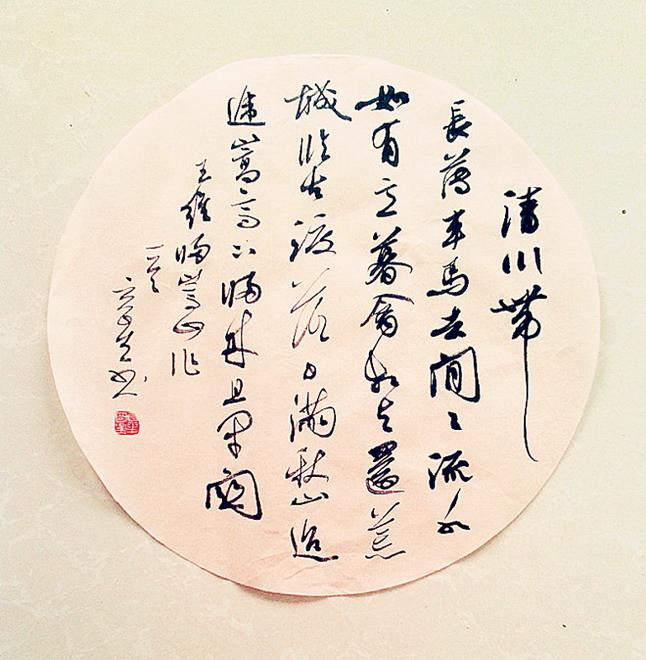 清川帶
長薄車馬去閒〻流水
如有意暮禽相与還荒
城臨古渡落日滿秋山迢
遞嵩高下歸来且閉関
王維歸嵩山作